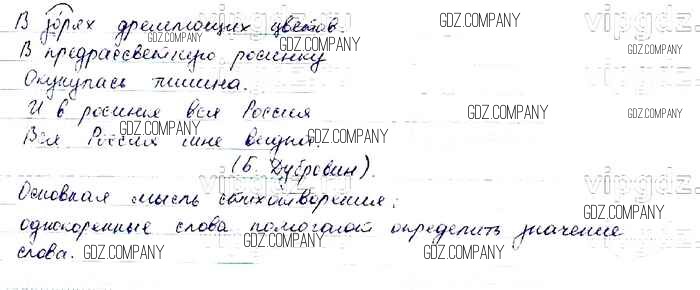 В зорях дремлющих цветов.
В предрассветную росинку
Окунулась тишина.
И в росинке вся Россия
Вся Россия мне видна.
(Б. Дубровин).
Основная мысль стихотворения:
однокоренные слова помогают определить значение
слова.
GDZ.COMPANY
GDZ.COMPANY
GDZ.COMPANY
GDZ.COMPANY
GDZ.COMPANY
GDZ.COMPANY
GDZ.COMPANY
GDZ.COMPANY
GDZ.COMPANY
GDZ.COMPANY
GDZ.COMPANY
vipgdz
vipgdz
vipgdz
vipgdz